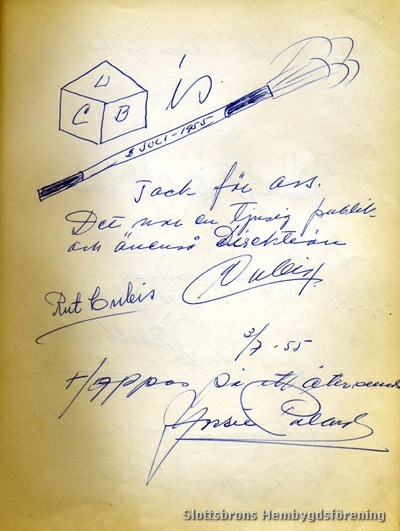 U
C B
is.
3 JULI - 1955
Tack för oss.
Det var en tjusig publik
och även så Direktion
Cubis
Rut Cubis
3/7 - 55
Hoppas på ett
Slottsbrons Hembygdsförening